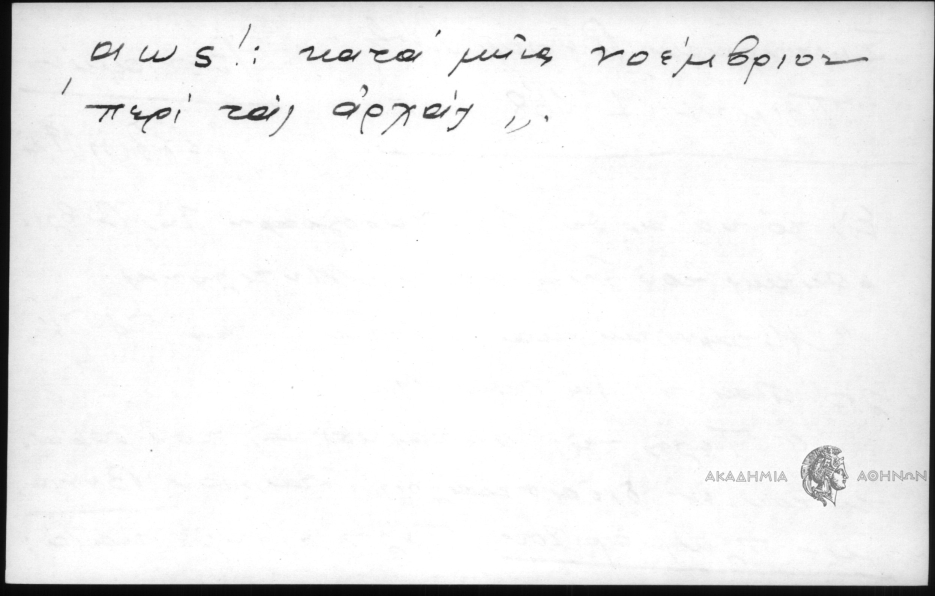 αιως!: κατά μῆνα Νοέμβριον
περὶ τὰς ἀρχάς ,,.
ΑΚΑΔΗΜΙΑ ΑΘΗΝΩΝ